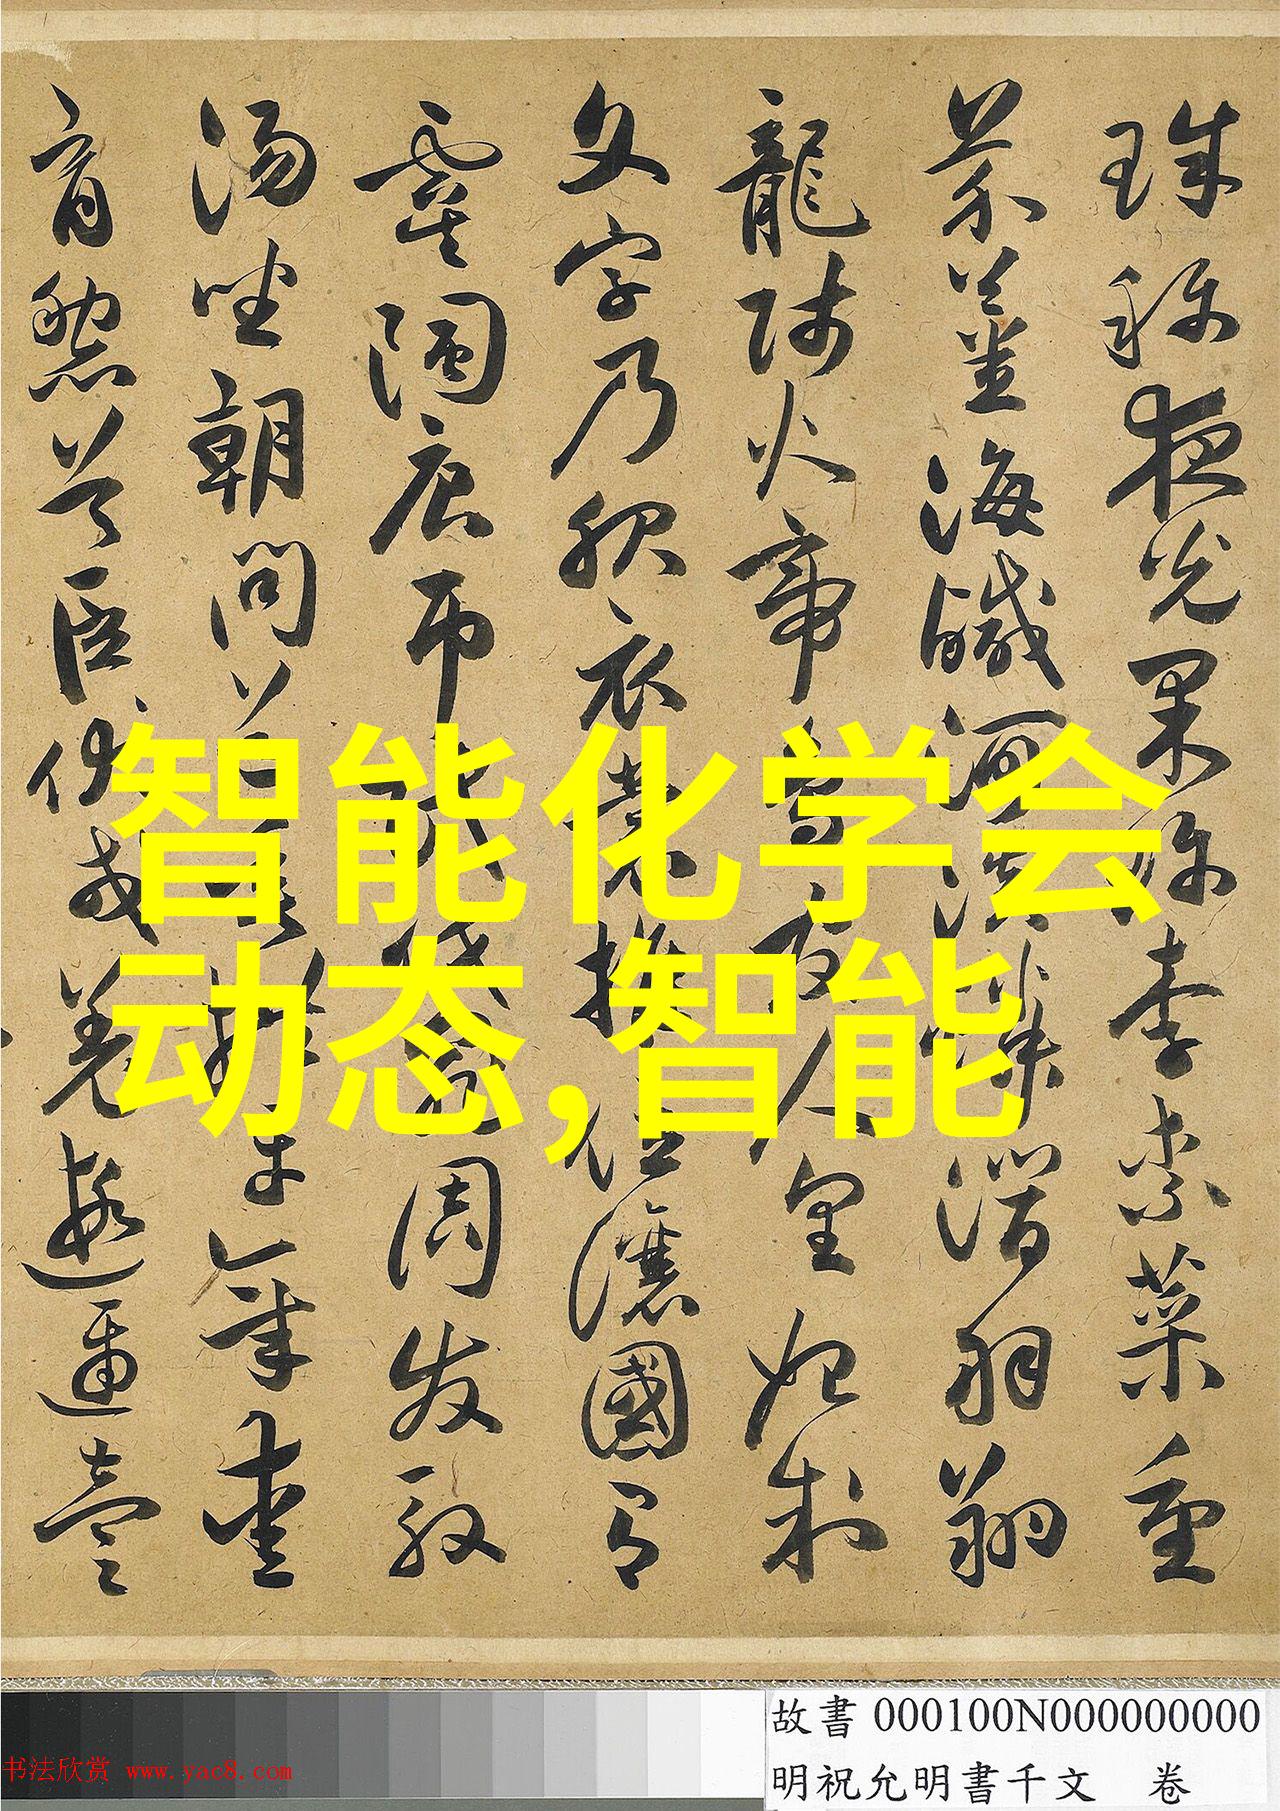 珠称夜光果珍李柰菜重
芥薑海鹹河淡鱗潛羽翔
龍師火帝鳥官人皇始制
文字乃服衣裳推位讓國有
虞陶唐弔民伐罪周發殷
湯坐朝問道垂拱平章愛
育黎首臣伏戎羌遐邇壹
智能化学会
动态,智能
故書 000100N000000000
明祝允明書千文 卷
书法欣赏 www.yac8.com